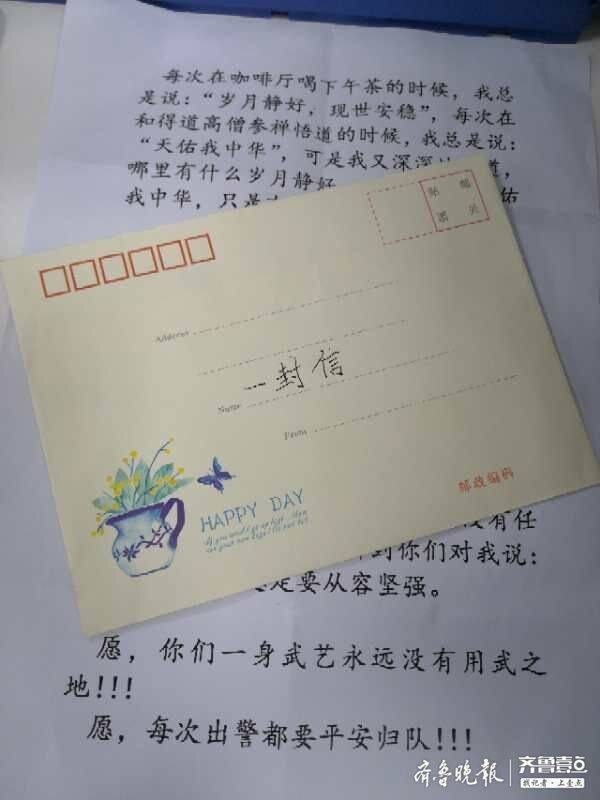 每次在咖啡厅喝下午茶的时候，我总
是说：“岁月静好，现世安稳”，每次在
和得道高僧参禅悟道的时候，我总是说：
“天佑我中华”，可是我又深深 道，
哪里有什么岁月静好
我中华，只是 佑
贴 邮
票 处
Address
一封信
Name
From
邮政编码
HAPPY DAY
没有任
到你们对我说：
定要从容坚强。
愿，你们一身武艺永远没有用武之
地!!!
愿，每次出警都要平安归队!!!
齐鲁晚报
齐鲁壹点
找记者·上壹点